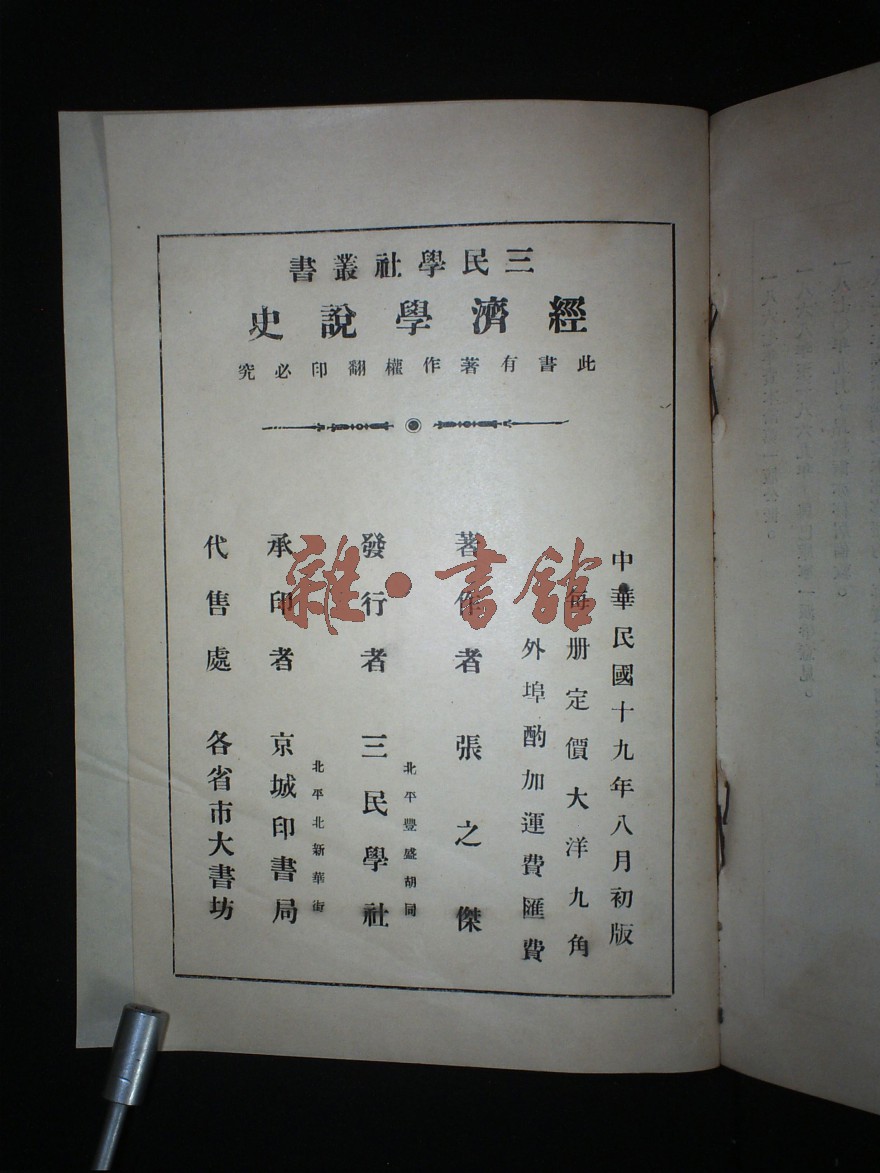 三民學社叢書
經濟學說史
此書有著作權翻印必究
中華民國十九年八月初版
每册定價大洋九角
外埠酌加運費匯費
著作者 張之傑
北平豐盛胡同
發行者 三民學社
北平北新華街
承印者 京城印書局
代售處 各省市大書坊
雜·書館